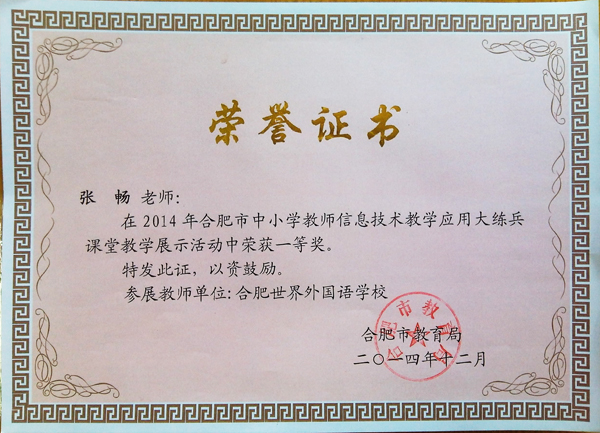 荣誉证书
张 畅 老师:
在2014年合肥市中小学教师信息技术教学应用大练兵
课堂教学展示活动中荣获一等奖。
特发此证，以资鼓励。
参展教师单位:合肥世界外国语学校
合肥市教育局
合肥市教育局
二〇一四年十二月